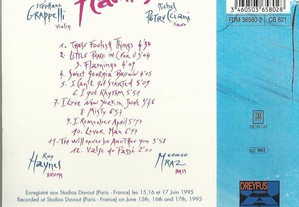 Flamingo
Stéphane Grappelli
violin
Michel Petrucciani
piano
FDM 36580-2 CB 821
3 460503 658028
1. These Foolish Things 4'38
2. Little Peace in C for U 3'04
3. Flamingo 4'09
4. Sweet Georgia Brown 4'05
5. I Can't get Started 5'09
6. I got Rhythm
7. I love New York in June 3'46
8. Misty 6'57
9. I Remember April
10. Lover Man 6'77
11. There will never be Another you 3'58
12. Valse du Passé 2'00
Roy Haynes
drums
George Mraz
bass
Enregistré aux Studios Davout (Paris - France) les 15,16 et 17 Juin 1995
Recorded at Studios Davout (Paris - France) on June 15th, 16th and 17th, 1995
DREYFUS